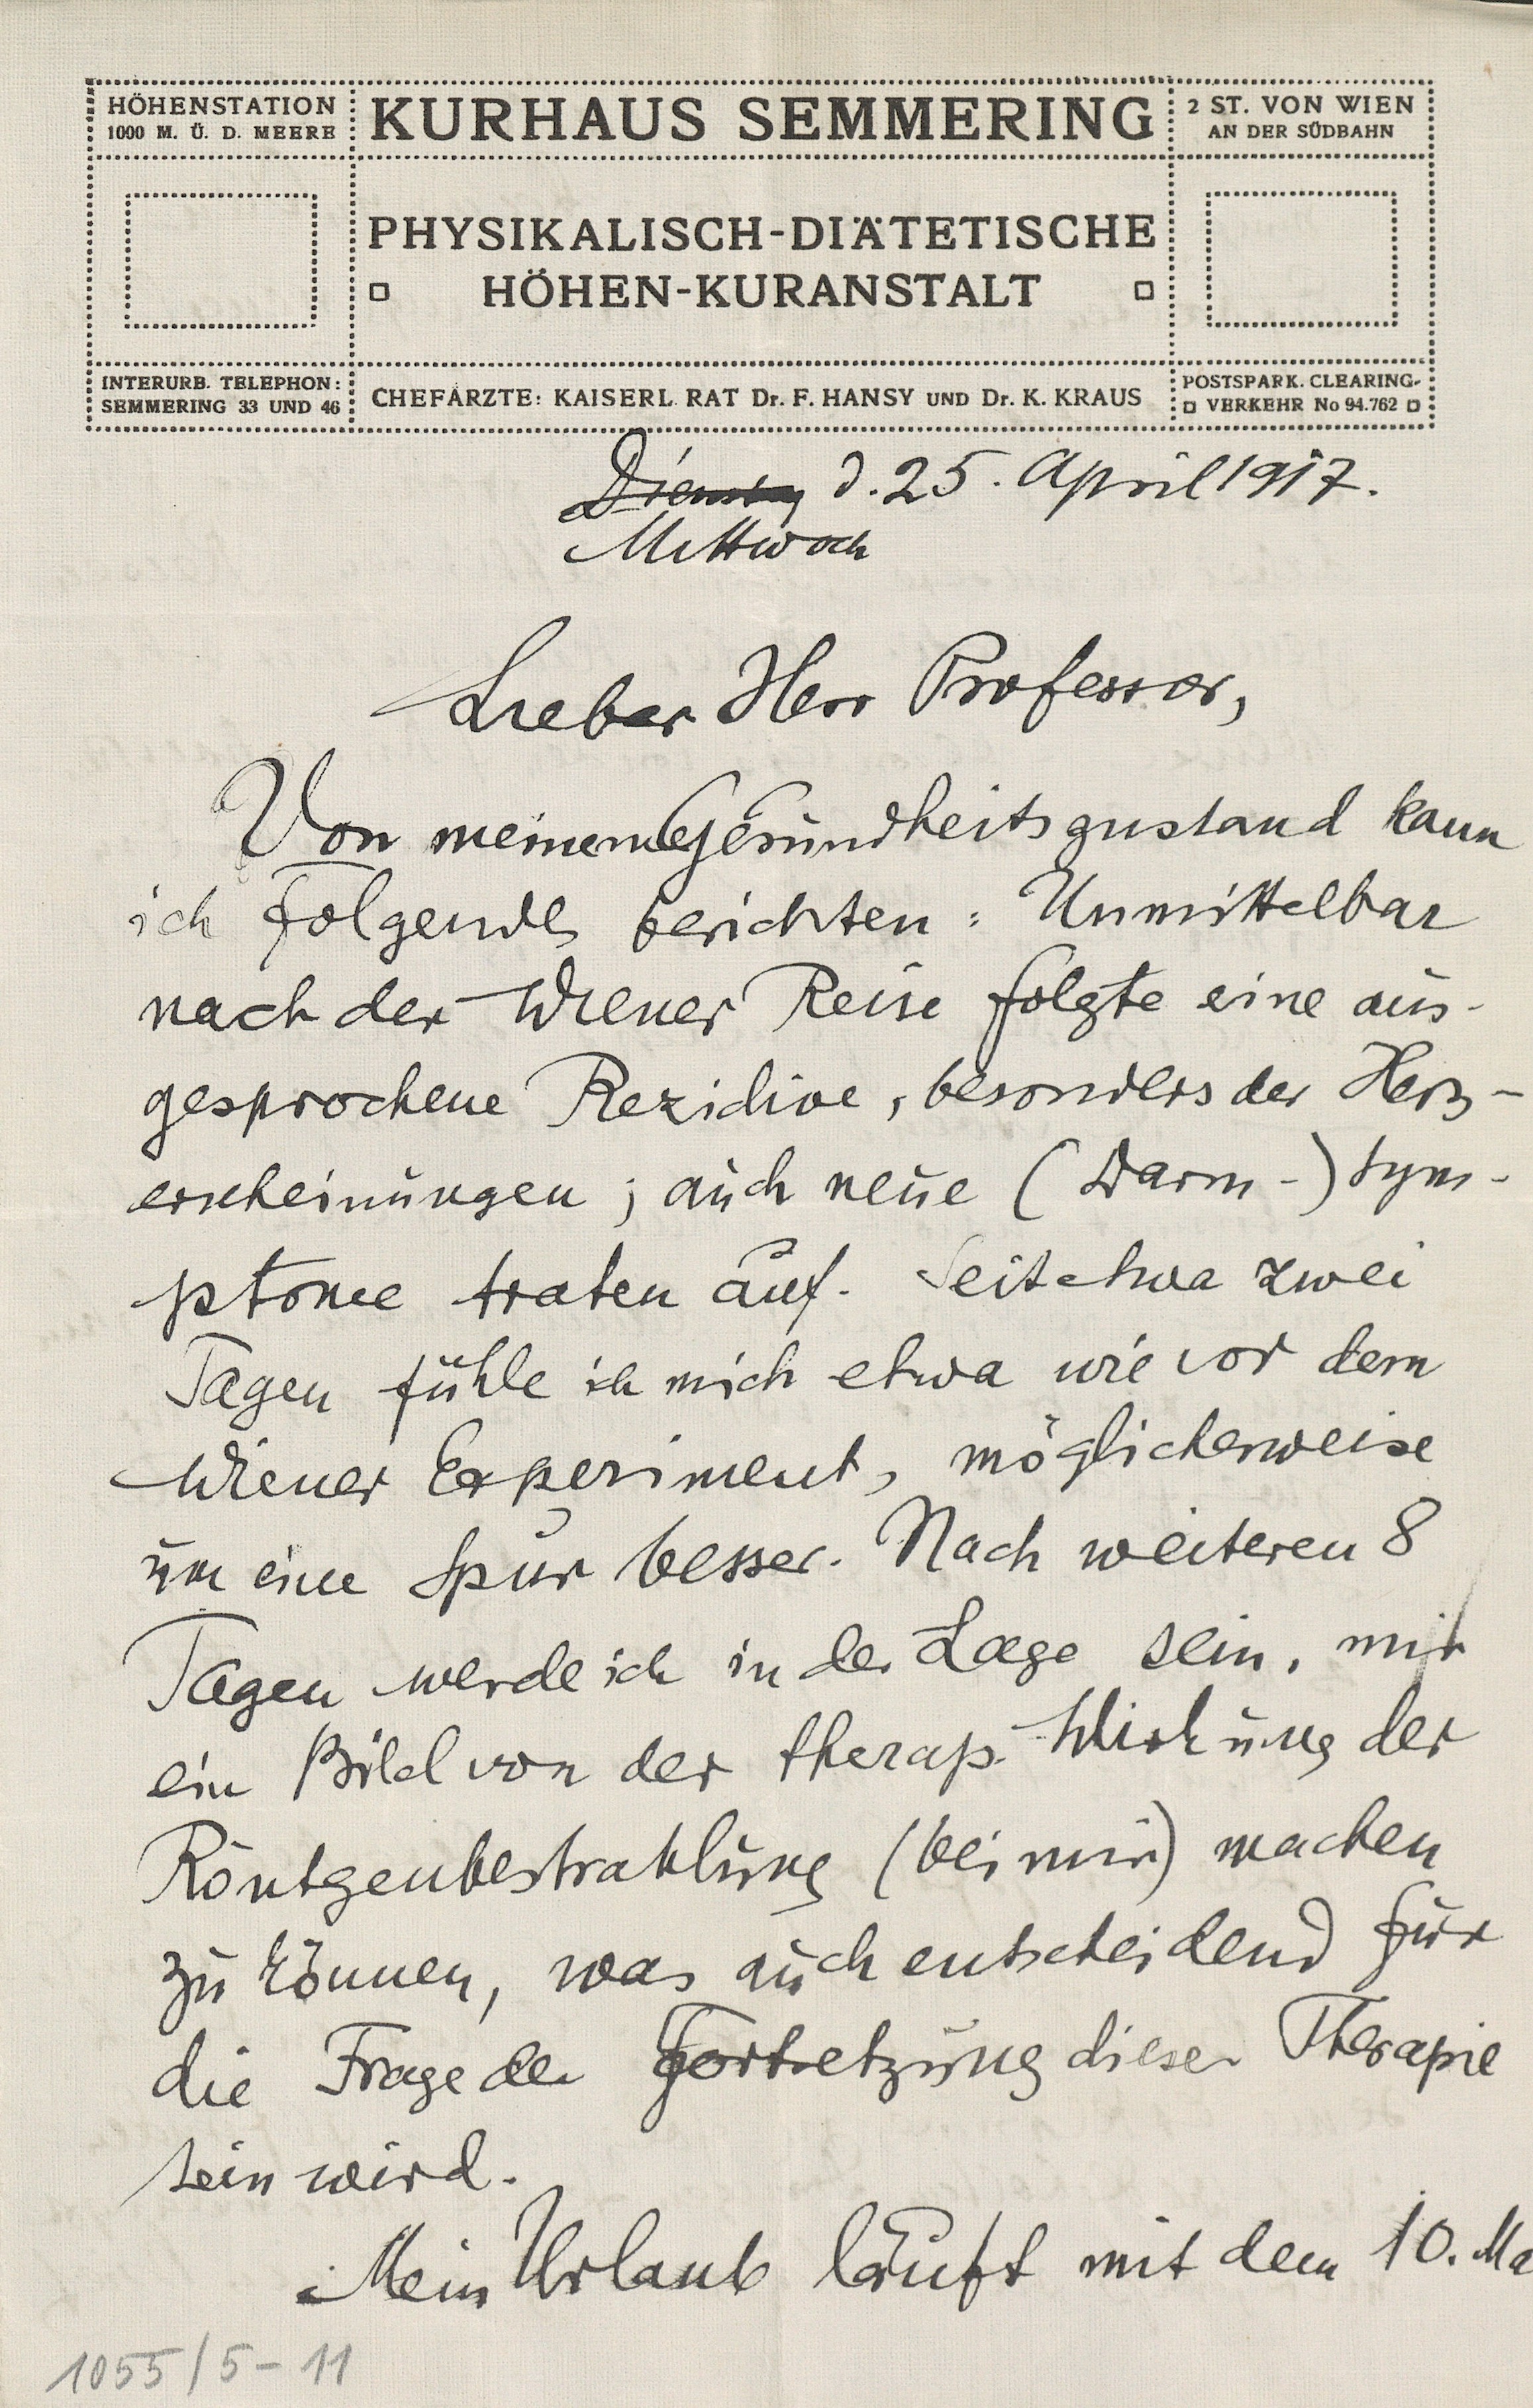 HÖHENSTATION
1000 M. Ü. D. MEERE
KURHAUS SEMMERING
2 ST. VON WIEN
AN DER SÜDBAHN
PHYSIKALISCH-DIÄTETISCHE
HÖHEN-KURANSTALT
INTERURB. TELEPHON:
SEMMERING 33 UND 46
CHEFÄRZTE: KAISERL. RAT Dr. F. HANSY UND Dr. K. KRAUS
POSTSPARK. CLEARING-
VERKEHR No 94.762
Dienstag d. 25. April 1917.
Mittwoch
Lieber Herr Professor,
Von meinem Gesundheitszustand kann
ich Folgendes berichten: Unmittelbar
nach der Wiener Reise folgte eine aus-
gesprochene Rezidive, besonders der Herz-
erscheinungen; auch neue (Darm-) Sym-
ptome traten auf. Seit etwa zwei
Tagen fühle ich mich etwa wie vor dem
Wiener Experiment, möglicherweise
um eine Spur besser. Nach weiteren 8
Tagen werde ich in der Lage sein, mir
ein Bild von der therap. Wirkung der
Röntgenbestrahlung (bei mir) machen
zu können, was auch entscheidend für
die Frage der Fortsetzung dieser Therapie
sein wird.
Mein Urlaub läuft mit dem 10. Ma
1055/5-11